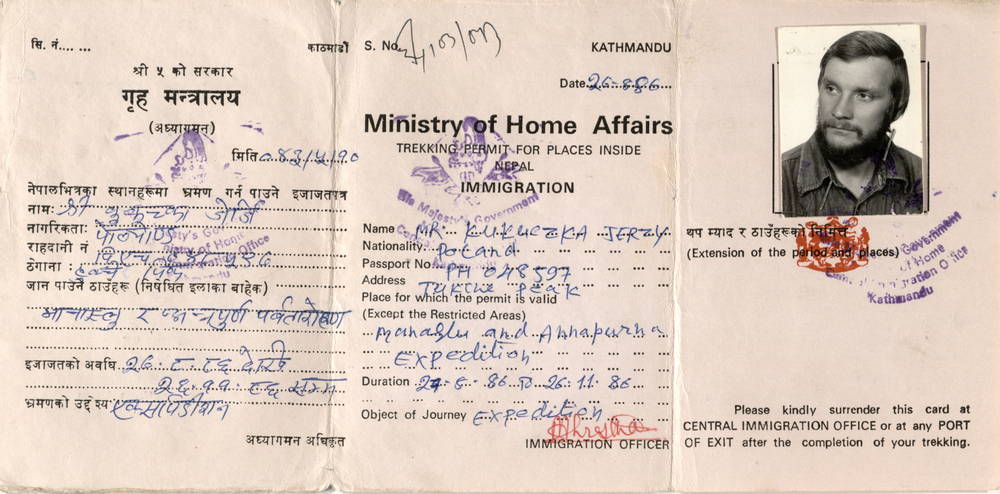 सि. नं.... ...
काठमाडौं
श्री ५ को सरकार
गृह मन्त्रालय
(अध्यागमन)
मिति
नेपालभित्रका स्थानहरूमा भ्रमण गर्न पाउने इजाजतपत्र
नाम: श्री कुकुच्का जेर्जि
नागरिकता: पोल्याण्ड
राहदानी नं
ठेगाना:
जान पाउने ठाउँहरू (निषेधित इलाका बाहेक)
र अन्नपूर्ण पर्वतारोहण
इजाजतको अवधि २६. ८. ८६ देखि
२६. ११. ८६ सम्म
भ्रमणको उद्देश्य
अध्यागमन अधिकृत
S. No.
KATHMANDU
Date 26-8-86
Ministry of Home Affairs
TREKKING PERMIT FOR PLACES INSIDE
NEPAL
IMMIGRATION
His Majesty's Government
Name MR. KUKUCZKA JERZY
Nationality Poland
Passport No. PH 048597
Address Tukche Peak
Place for which the permit is valid
(Except the Restricted Areas)
Manaslu and Annapurna
Expedition
Duration 86 to 26.11.86
Object of Journey Expedition
IMMIGRATION OFFICER
थप म्याद र ठाउँहरूको निमित्त
(Extension of the period and places)
Government
of Home
Immigration Office
Kathmandu
Please kindly surrender this card at
CENTRAL IMMIGRATION OFFICE or at any PORT
OF EXIT after the completion of your trekking.